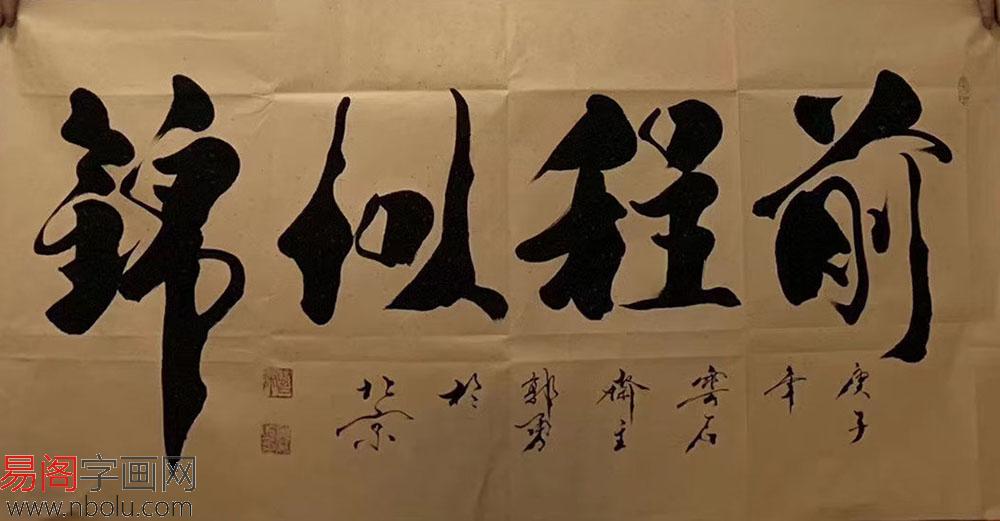 前程似錦
庚子年寄石齋主郭勇於北京
易阁字画网
www.nbolu.com